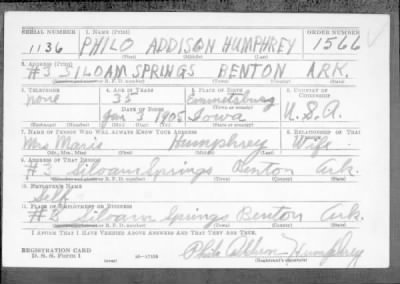 SERIAL NUMBER 1. NAME (Print) ORDER NUMBER
1136 PHILO ADDISON HUMPHREY 1566
(First) (Middle) (Last)
2. ADDRESS (Print)
#3 SILOAM SPRINGS BENTON ARK.
(Town) (County) (State)
3. TELEPHONE 4. AGE IN YEARS 5. PLACE OF BIRTH 6. COUNTRY OF CITIZENSHIP
none 35 Emmetsburg
DATE OF BIRTH
Jan 3 1905 Iowa U.S.A.
(Mo.) (Day) (Yr.) (State or country)
7. NAME OF PERSON WHO WILL ALWAYS KNOW YOUR ADDRESS 8. RELATIONSHIP OF THAT PERSON
Mrs Marie Humphrey Wife
(Mr., Mrs., Miss) (First) (Middle) (Last)
9. ADDRESS OF THAT PERSON
#3 Siloam Springs Benton Ark.
(Town) (County) (State)
10. EMPLOYER'S NAME
Self
11. PLACE OF EMPLOYMENT OR BUSINESS
#3 Siloam Springs Benton Ark.
(Town) (County) (State)
I AFFIRM THAT I HAVE VERIFIED ABOVE ANSWERS AND THAT THEY ARE TRUE.
REGISTRATION CARD
D. S. S. Form 1 (over) 16-17105 Philo Addison Humphrey
(Registrant's signature)